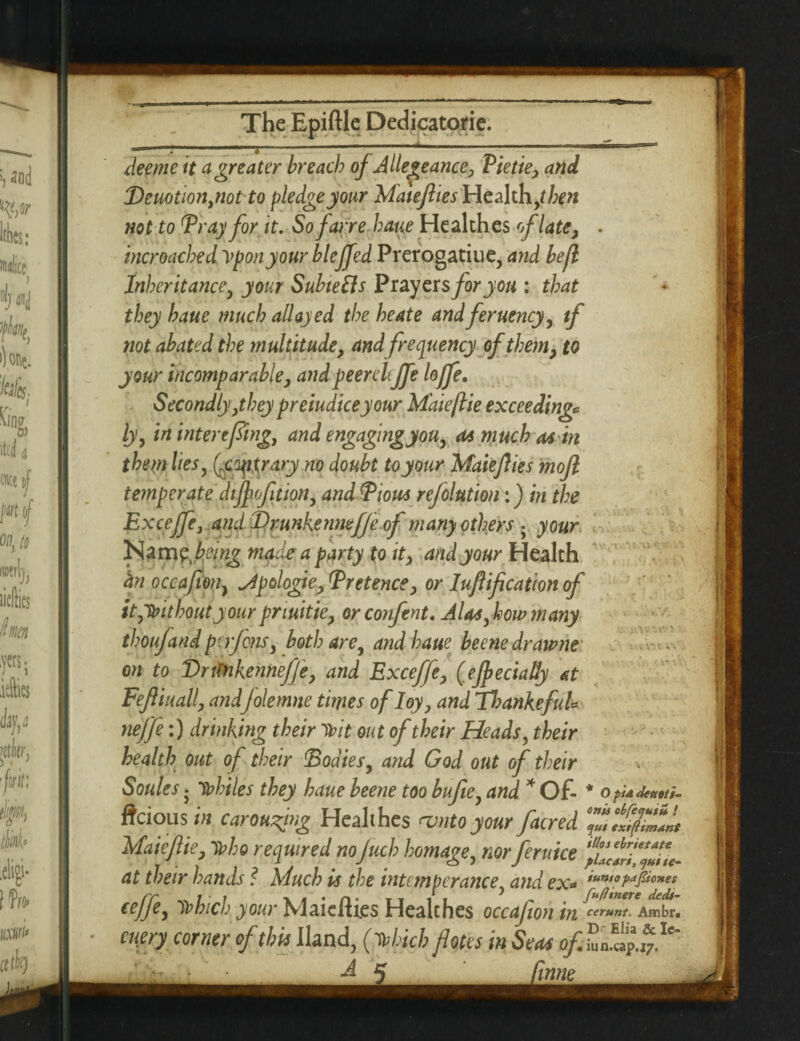 The Epistle Dedicatorie.
deeme it a greater breach of Allegeance, Pietie, and
Deuotion, not to pledge your Maiesties Health, then
not to Pray for it. So farre haue Healthes of late,
incroached vpon your blessed Prerogatiue, and best
Inheritance, your Subiects Prayers for you : that
they haue much allayed the heate and feruency, if
not abated the multitude, and frequency of them, to
your incomparable, and peerelesse losse.
Secondly, they preiudice your Maiestie exceeding-
ly, in interessing, and engaging you, as much as in
them lies, (contrary no doubt to your Maiesties most
temperate disposition, and Pious resolution :) in the
Excesse, and Drunkennesse of many others ; your
Name being made a party to it, and your Health
an occasion, Apologie, Pretence, or Iustification of
it, without your priuitie, or consent. Alas, how many
thousand persons, both are, and haue beene drawne
on to Drunkennesse, and Excesse, (especially at
Festiuall, and solemne times of Ioy, and Thankeful-
nesse :) drinking their wit out of their Heads, their
health out of their Bodies, and God out of their
Soules ; whiles they haue beene too busie, and * Of-
ficious in carouzing Healthes vnto your sacred
Maiestie, who required no such homage, nor seruice
at their hands ? Much is the intemperance, and ex-
cesse, which your Maiesties Healthes occasion in
euery corner of this Iland, (which flotes in Seas of
A 5 sinne
* O pia deuoti-
onis obsequiū !
qui existimant
illos ebrietate
placari, qui ie-
iunio passiones
sustinere dedi-
cerunt. Ambr.
De Elia & Ie-
iun. cap. 17.
, and
ize, or
lthes :
malice,
nly and
phane,
) one.
King,
ited a
once of
part of
on, to
iesties
st men
yers ;
iesties
day, a
gether,
for it :
think-
eligi-
Pro-
uxuri-
ce they